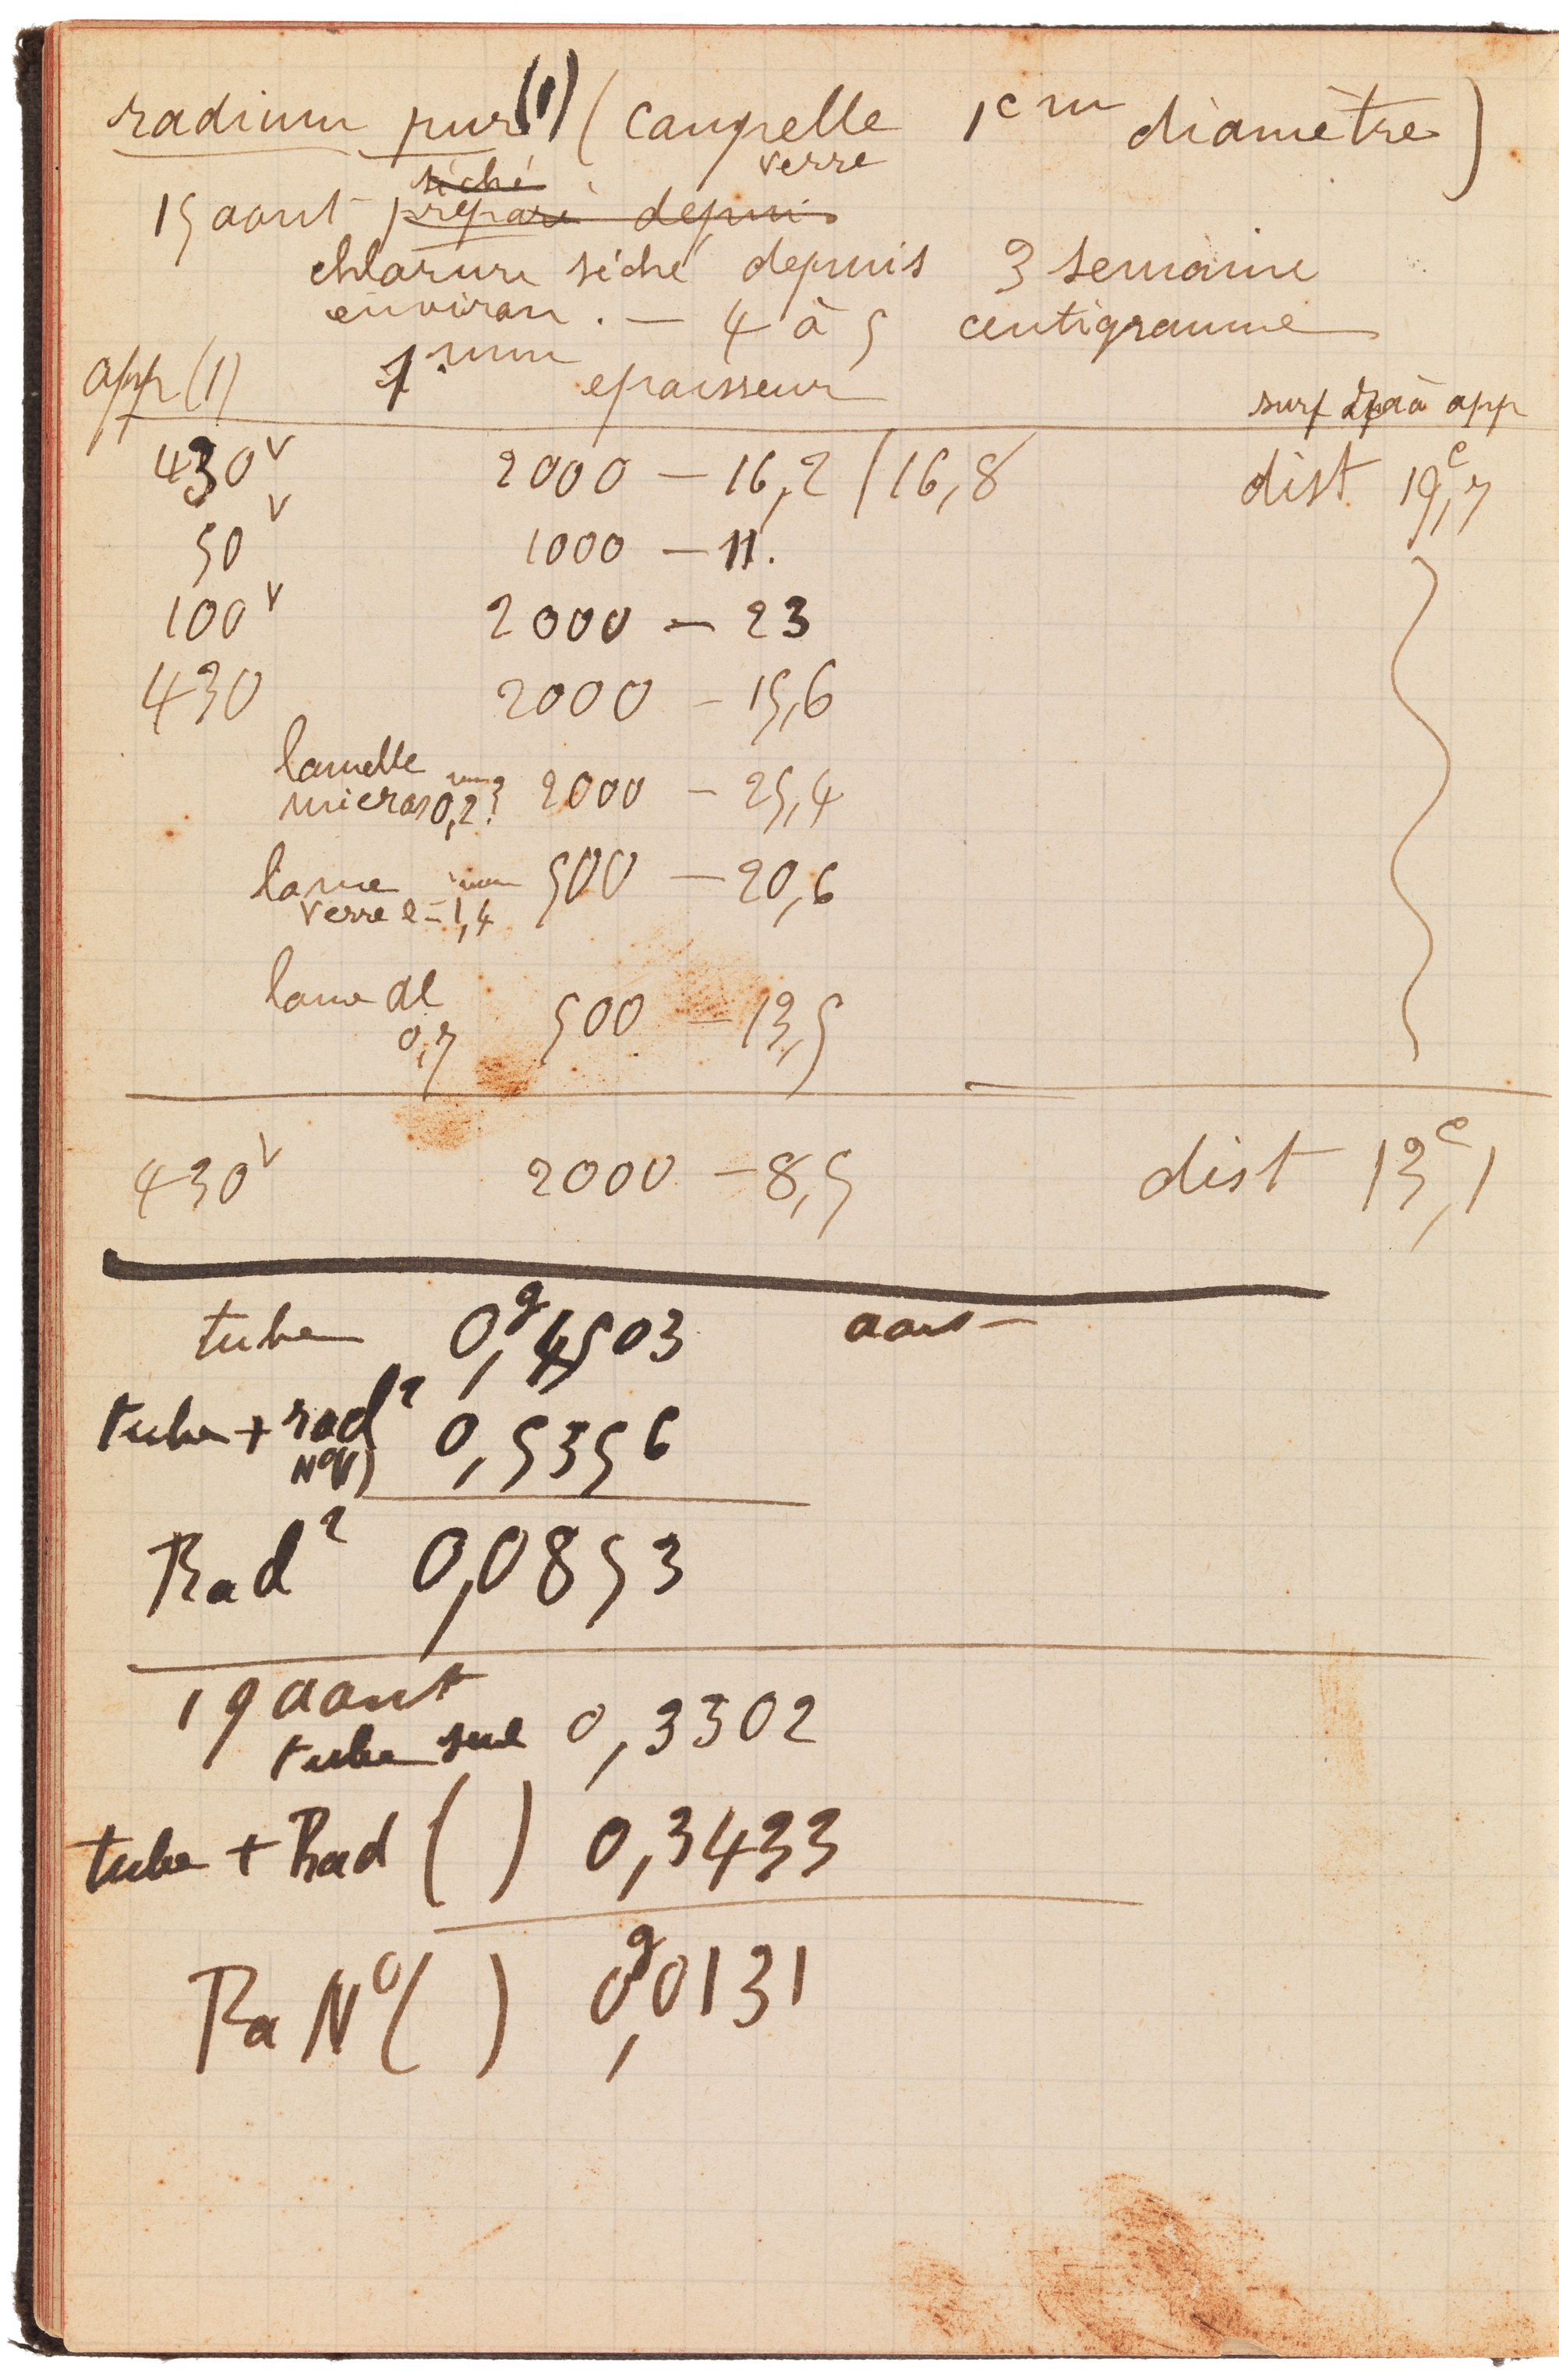 radium pur (1) (coupelle 1cm diamètre)
verre
séché
15 aout préparé depuis
chlorure séché depuis 3 semaine
environ . — 4 à 5 centigramme
app (1) 1 mm epaisseur
surf à app
430v 2000 — 16,2 / 16,8 dist 19c,7
50v 1000 — 11.
100v 2000 — 23
430 2000 — 15,6
lamelle
micros 0,2mm? 2000 — 25,4
lame mm 500 — 20,6
verre e=1,4
lame Al 500 — 13,5
0,7
430v 2000 — 8,5 dist 13c,1
tube 0g,4503 aout
tube + rad2 0,5356
No(1)
Rad2 0,0853
19 aout
tube seul 0,3302
tube + Rad ( ) 0,3433
Ra No ( ) 0g,0131